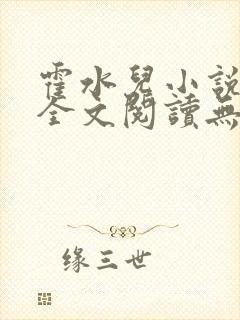 霍水兒小說
全文閱讀無
缘三世